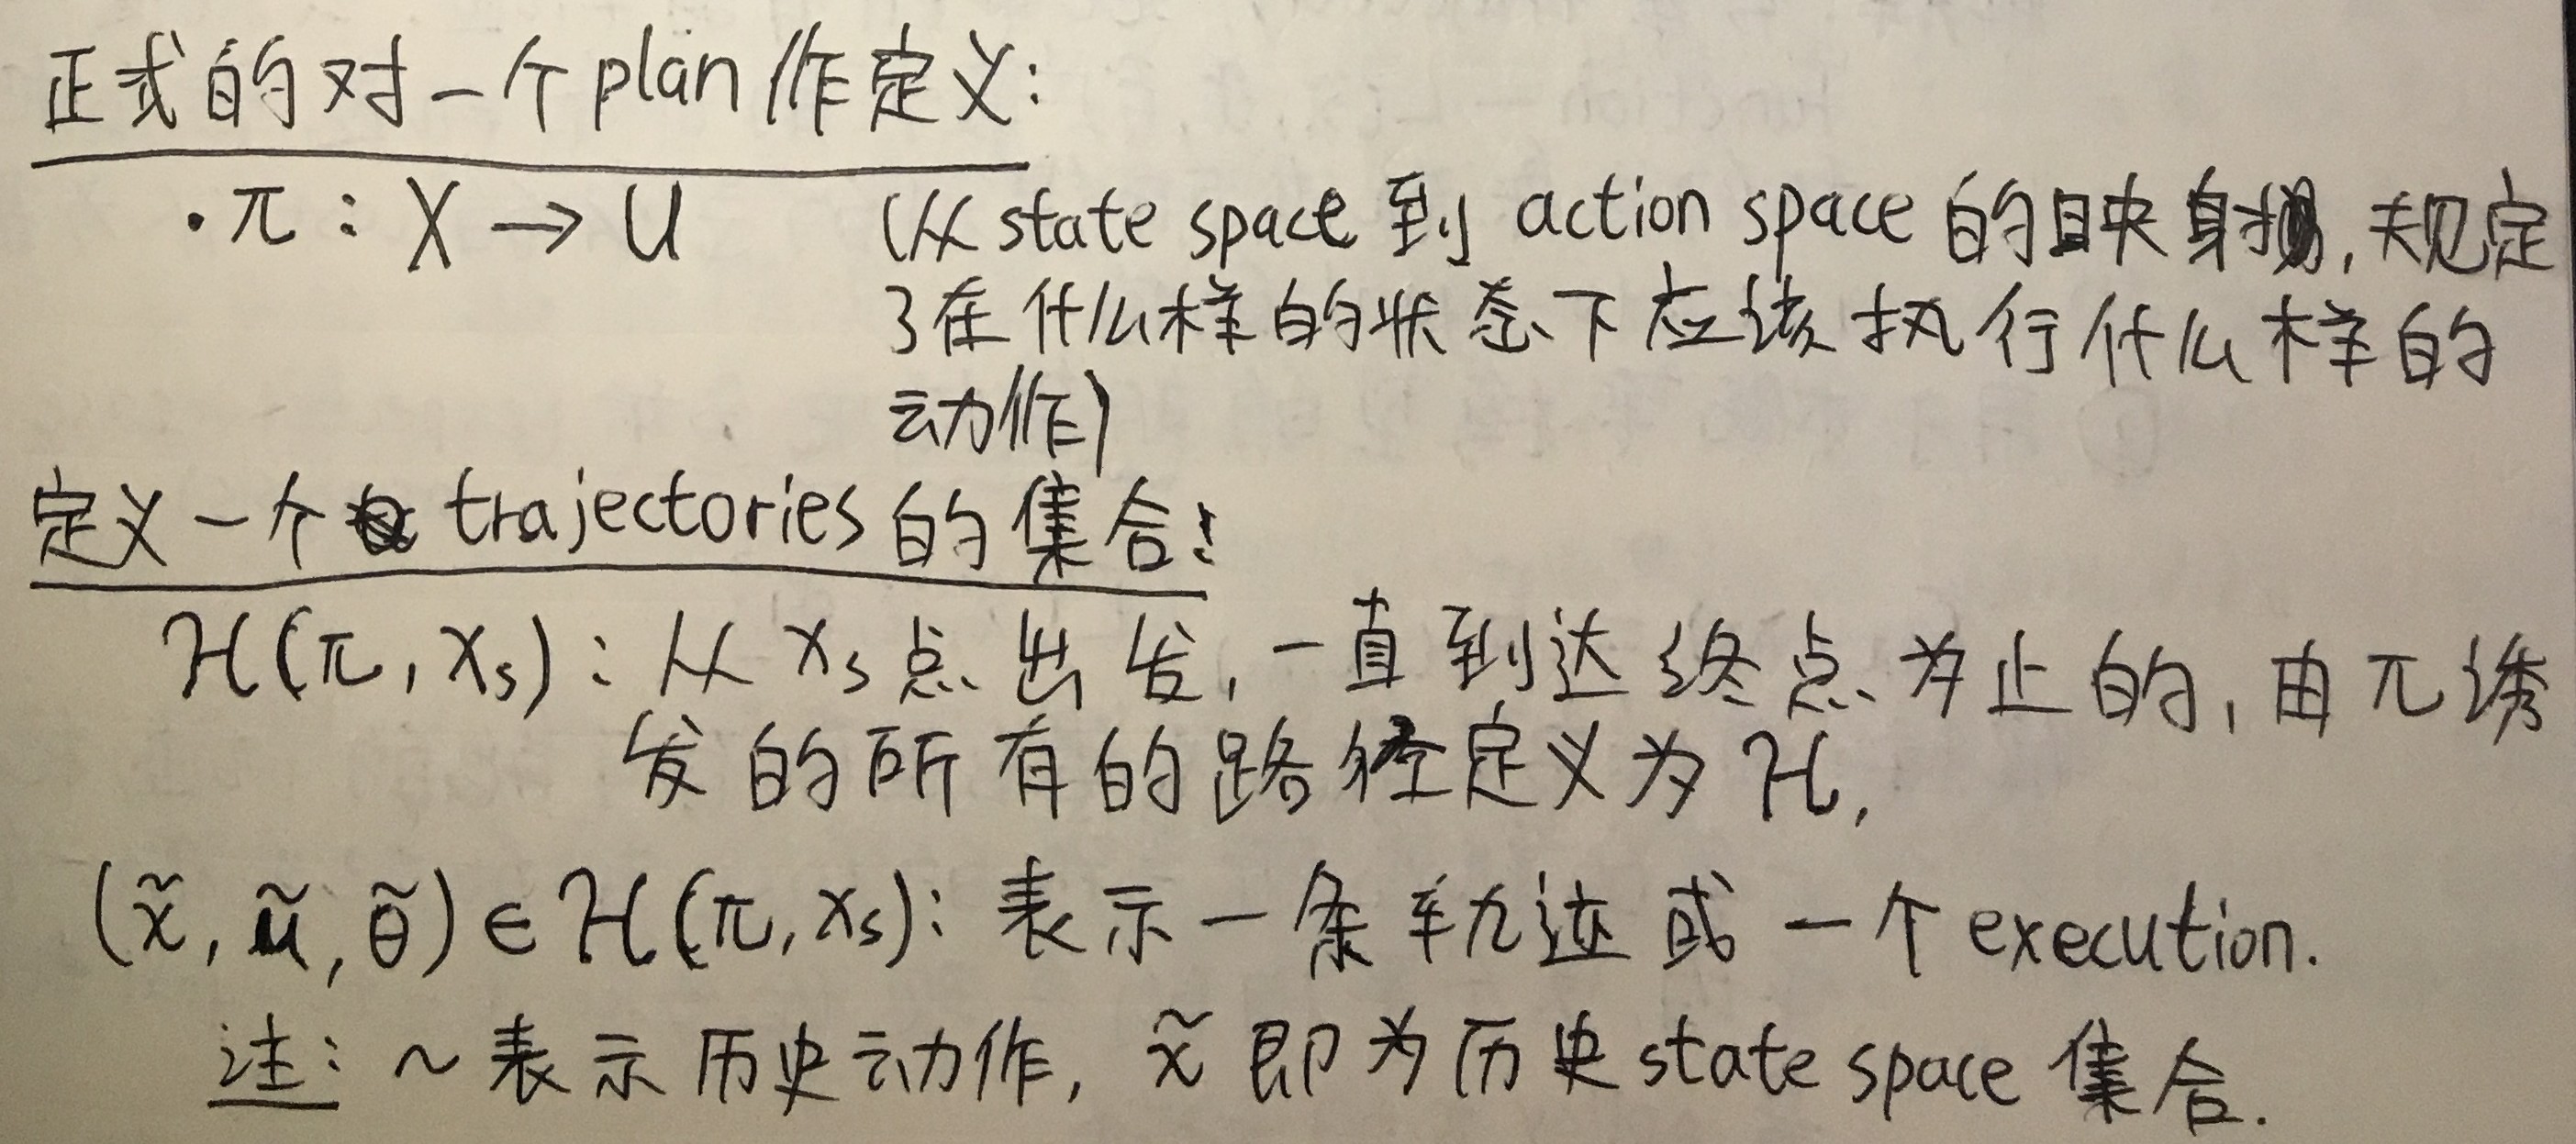 正式的对一个plan作定义:
·π : X → U (从state space到 action space的映射, 规定
了在什么样的状态下应该执行什么样的
动作)
定义一个 trajectories的集合:
H(π, xs) : 从 xs点出发, 一直到达终点为止的, 由π诱
发的所有的路径定义为 H,
(x̃, ũ, θ̃) ∈ H(π, xs): 表示一条轨迹或一个 execution.
注: ~表示历史动作, x̃ 即为历史state space集合.